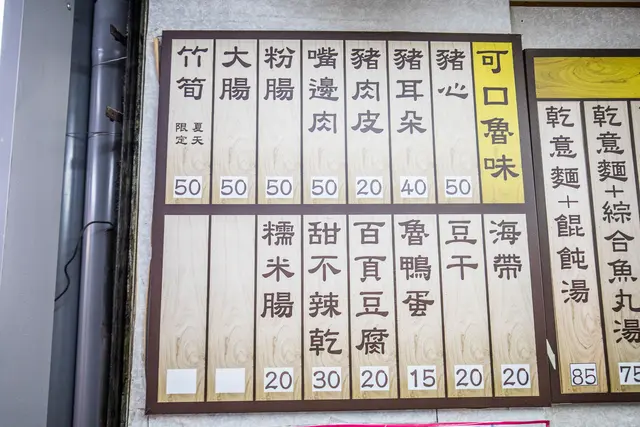 可口魯味
豬心 50
豬耳朵 40
豬肉皮 20
嘴邊肉 50
粉腸 50
大腸 50
竹筍 夏天限定 50
海帶 20
豆干 20
魯鴨蛋 15
百頁豆腐 20
甜不辣乾 30
糯米腸 20
乾意麵+綜合魚丸湯 75
乾意麵+餛飩湯 85